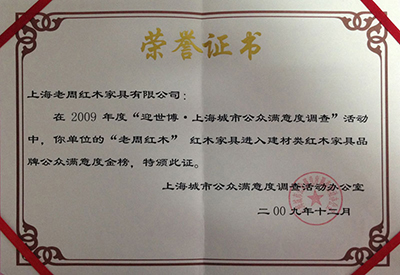 荣誉证书
上海老周红木家具有限公司：
在 2009 年度“迎世博·上海城市公众满意度调查”活动
中，你单位的“老周红木” 红木家具进入建材类红木家具品
牌公众满意度金榜，特颁此证。
上海城市公众满意度调查活动办公室
二00九年十二月